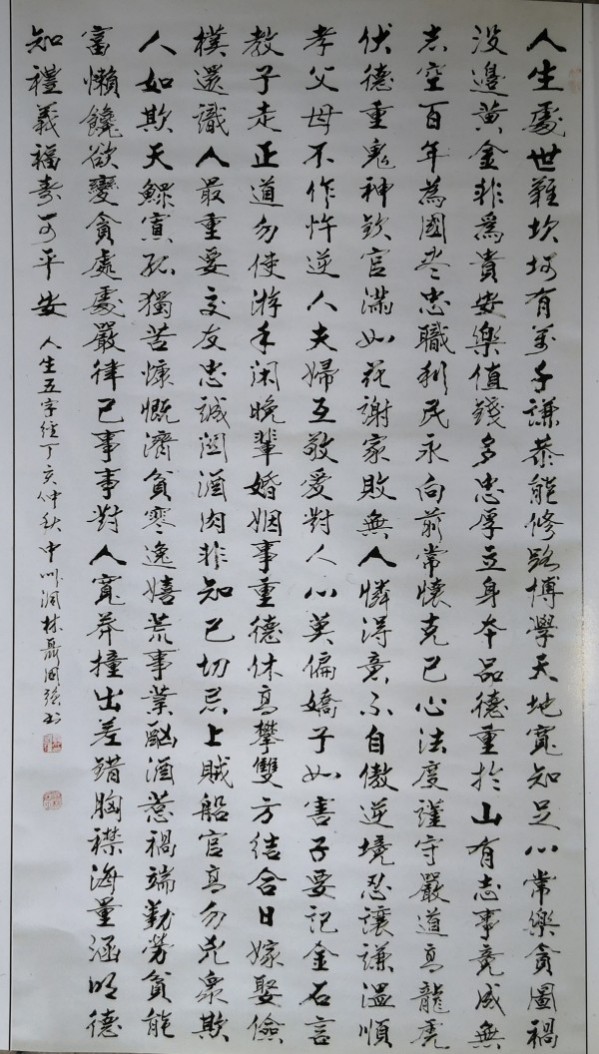 人生處世難坎坷有萬千謙恭能修路博學天地寬知足心常樂貪圖禍
沒邊黃金非為貴安樂值錢多忠厚立身本品德重於山有志事竟成無
志空百年為國盡忠職利民永向前常懷克己心法度謹守嚴道高龍虎
伏德重鬼神欽官滿如花謝家敗無人憐得意不自傲逆境忍讓謙溫順
孝父母不作忤逆人夫婦互敬愛對人心莫偏嬌子如害子要記金石言
教子走正道勿使游手閑晚輩婚姻事重德休高攀雙方結合日嫁娶儉
樸還識人最重要交友忠誠圆酒肉非知己切忌上賊船官高勿光衆欺
人如欺天鰥寡孤獨苦慷慨濟貧寒逸嬉荒事業酗酒惹禍端勤勞貧能
富懶饞欲變貪處處嚴律己事事對人寬莽撞出差錯胸襟海量涵明德
知禮義福壽可平安
人生五字經丁亥仲秋中州洞林聶國強书